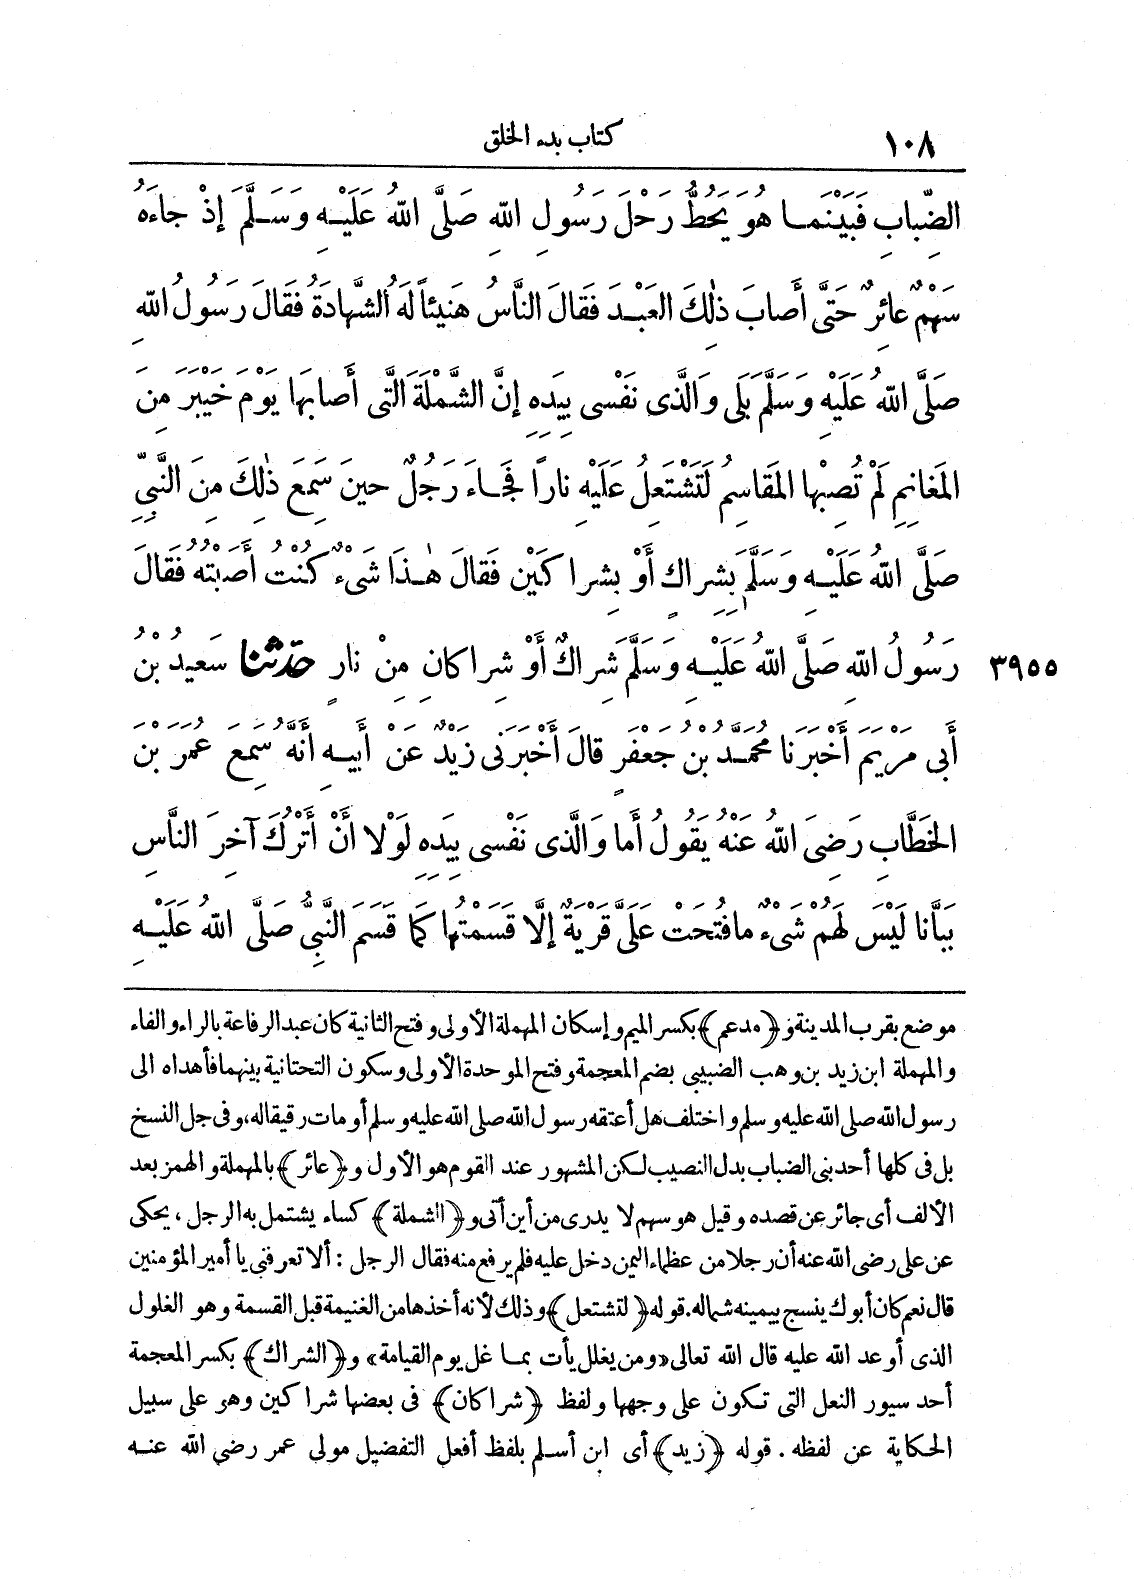 ١٠٨ كتاب بدء الخلق
الضِّبابِ فَبَيْنَمَا هُوَ يَحُطُّ رَحْلَ رَسُولِ اللهِ صَلَّى اللهُ عَلَيْهِ وَسَلَّمَ إِذْ جاءَهُ
سَهْمٌ عائِرٌ حَتَّى أَصابَ ذٰلِكَ العَبْدَ فَقالَ النَّاسُ هَنِيئاً لَهُ الشَّهادَةُ فَقالَ رَسُولُ اللهِ
صَلَّى اللهُ عَلَيْهِ وَسَلَّمَ بَلَى وَالَّذى نَفْسى بِيَدِهِ إِنَّ الشَّمْلَةَ الَّتى أَصابَها يَوْمَ خَيْبَرَ مِنَ
المَغانِمِ لَمْ تُصِبْها المَقاسِمُ لَتَشْتَعِلُ عَلَيْهِ ناراً فَجاءَ رَجُلٌ حينَ سَمِعَ ذٰلِكَ مِنَ النَّبِىِّ
صَلَّى اللهُ عَلَيْهِ وَسَلَّمَ بِشِراكٍ أَوْ بِشِراكَيْنِ فَقالَ هٰذا شَىْءٌ كُنْتُ أَصَبْتُهُ فَقالَ
رَسُولُ اللهِ صَلَّى اللهُ عَلَيْهِ وَسَلَّمَ شِراكٌ أَوْ شِراكانِ مِنْ نارٍ حَدَّثَنا سَعيدُ بْنُ ٣٩٥٥
أَبى مَرْيَمَ أَخْبَرَنا مُحَمَّدُ بْنُ جَعْفَرٍ قالَ أَخْبَرَنى زَيْدٌ عَنْ أَبيهِ أَنَّهُ سَمِعَ عُمَرَ بْنَ
الخَطَّابِ رَضِىَ اللهُ عَنْهُ يَقُولُ أَما وَالَّذى نَفْسى بِيَدِهِ لَوْلا أَنْ أَتْرُكَ آخِرَ النَّاسِ
بَبَّانا لَيْسَ لَهُمْ شَىْءٌ ما فُتِحَتْ عَلَىَّ قَرْيَةٌ إِلَّا قَسَمْتُها كَمَا قَسَمَ النَّبِىُّ صَلَّى اللهُ عَلَيْهِ
موضع بقرب المدينة و ﴿مدعم﴾ بكسر الميم وإسكان المهملة الأولى وفتح الثانية كان عبد الرفاعة بالراء والفاء
والمهملة ابن زيد بن وهب الضبيبى بضم المعجمة وفتح الموحدة الأولى وسكون التحتانية بينهما فأهداه الى
رسول الله صلى الله عليه وسلم واختلف هل أعتقه رسول الله صلى الله عليه وسلم أو مات رقيقا له، وفى جل النسخ
بل فى كلها أحد بنى الضباب بدل النصيب لكن المشهور عند القوم هو الأول و ﴿عائر﴾ بالمهملة والهمز بعد
الألف أى جائر عن قصده وقيل هو سهم لا يدرى من أين أتى و ﴿الشملة﴾ كساء يشتمل به الرجل ، يحكى
عن على رضى الله عنه أن رجلا من عظماء اليمن دخل عليه فلم يرفع منه فقال الرجل : ألا تعرفنى يا أمير المؤمنين
قال نعم كان أبوك ينسج بيمينه شماله. قوله ﴿لتشتعل﴾ وذلك لأنه أخذها من الغنيمة قبل القسمة وهو الغلول
الذى أوعد الله عليه قال الله تعالى «ومن يغلل يأت بما غل يوم القيامة» و ﴿الشراك﴾ بكسر المعجمة
أحد سيور النعل التى تكون على وجهها ولفظ ﴿شراكان﴾ فى بعضها شراكين وهو على سبيل
الحكاية عن لفظه . قوله ﴿زيد﴾ أى ابن أسلم بلفظ أفعل التفضيل مولى عمر رضي الله عنه